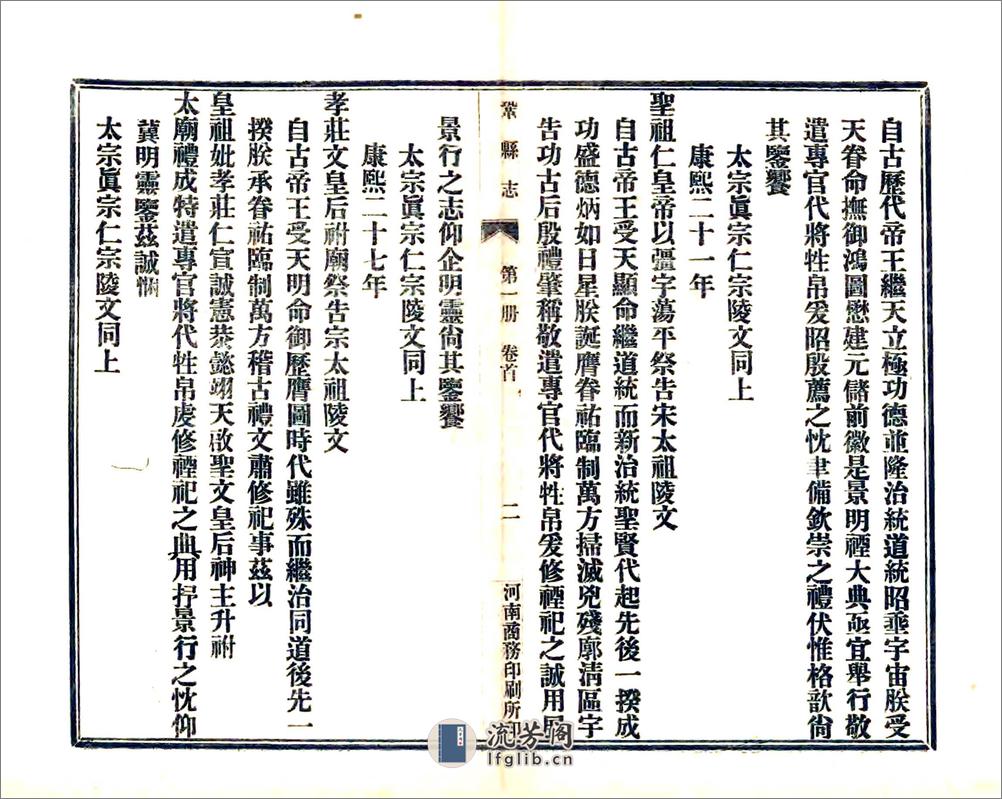 自古歷代帝王繼天立極功德並隆治統道統昭垂宇宙朕受
天眷命撫御鴻圖懋建元儲前徽是景明禋大典亟宜舉行敬
遣專官代將牲帛爰昭殷薦之忱聿備欽崇之禮伏惟格歆尙
其鑒饗
太宗眞宗仁宗陵文同上
康熙二十一年
聖祖仁皇帝以疆宇蕩平祭告宋太祖陵文
自古帝王受天顯命繼道統而新治統聖賢代起先後一揆成
功盛德炳如日星朕誕膺眷祐臨制萬方掃滅兇殘廓清區宇
告功古后殷禮肇稱敬遣專官代將牲帛爰修禋祀之誠用展
鞏縣志 第一册 卷首 二 河南商務印刷所印
景行之志仰企明靈尙其鑒饗
太宗眞宗仁宗陵文同上
康熙二十七年
孝莊文皇后祔廟祭告宗太祖陵文
自古帝王受天明命御歷膺圖時代雖殊而繼治同道後先一
揆朕承眷祐臨制萬方稽古禮文肅修祀事茲以
皇祖妣孝莊仁宣誠憲恭懿翊天啟聖文皇后神主升祔
太廟禮成特遣專官將代牲帛虔修禋祀之典用抒景行之忱仰
冀明靈鑒茲誠悃
太宗眞宗仁宗陵文同上
流芳閣
lfglib.cn